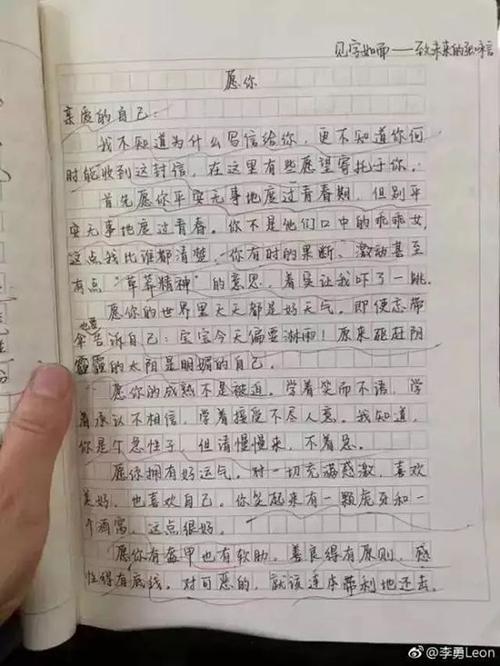 见字如面——致未来的
愿你
亲爱的自己:
我不知道为什么写信给你,更不知道你何
时能收到这封信,在这里有些愿望寄托于你。
首先愿你平安无事地度过青春期,但别平
安无事地度过青春。你不是他们口中的乖乖女,
这点我比谁都清楚,你有时的果断、激动甚至
有点“草莽精神”的意思,着实让我吓了一跳。
愿你的世界里天天都是好天气。即使忘带
伞也要告诉自己:宝宝今天偏要淋雨!原来驱赶阴
霾的太阳是明媚的自己。
愿你的成熟不是被迫。学着笑而不语,学
着承认不相信,学着接受不尽人意。我知道,
你是个急性子,但请慢慢来,不着急。
愿你拥有好运气。对一切充满感激,喜欢
美好,也喜欢自己。你笑起来有一颗虎牙和一
个酒窝,这点很好。
愿你有盔甲也有软肋。善良得有原则,感
性得有底线。对可恶的,就该连本带利地还去。
@李勇Leon